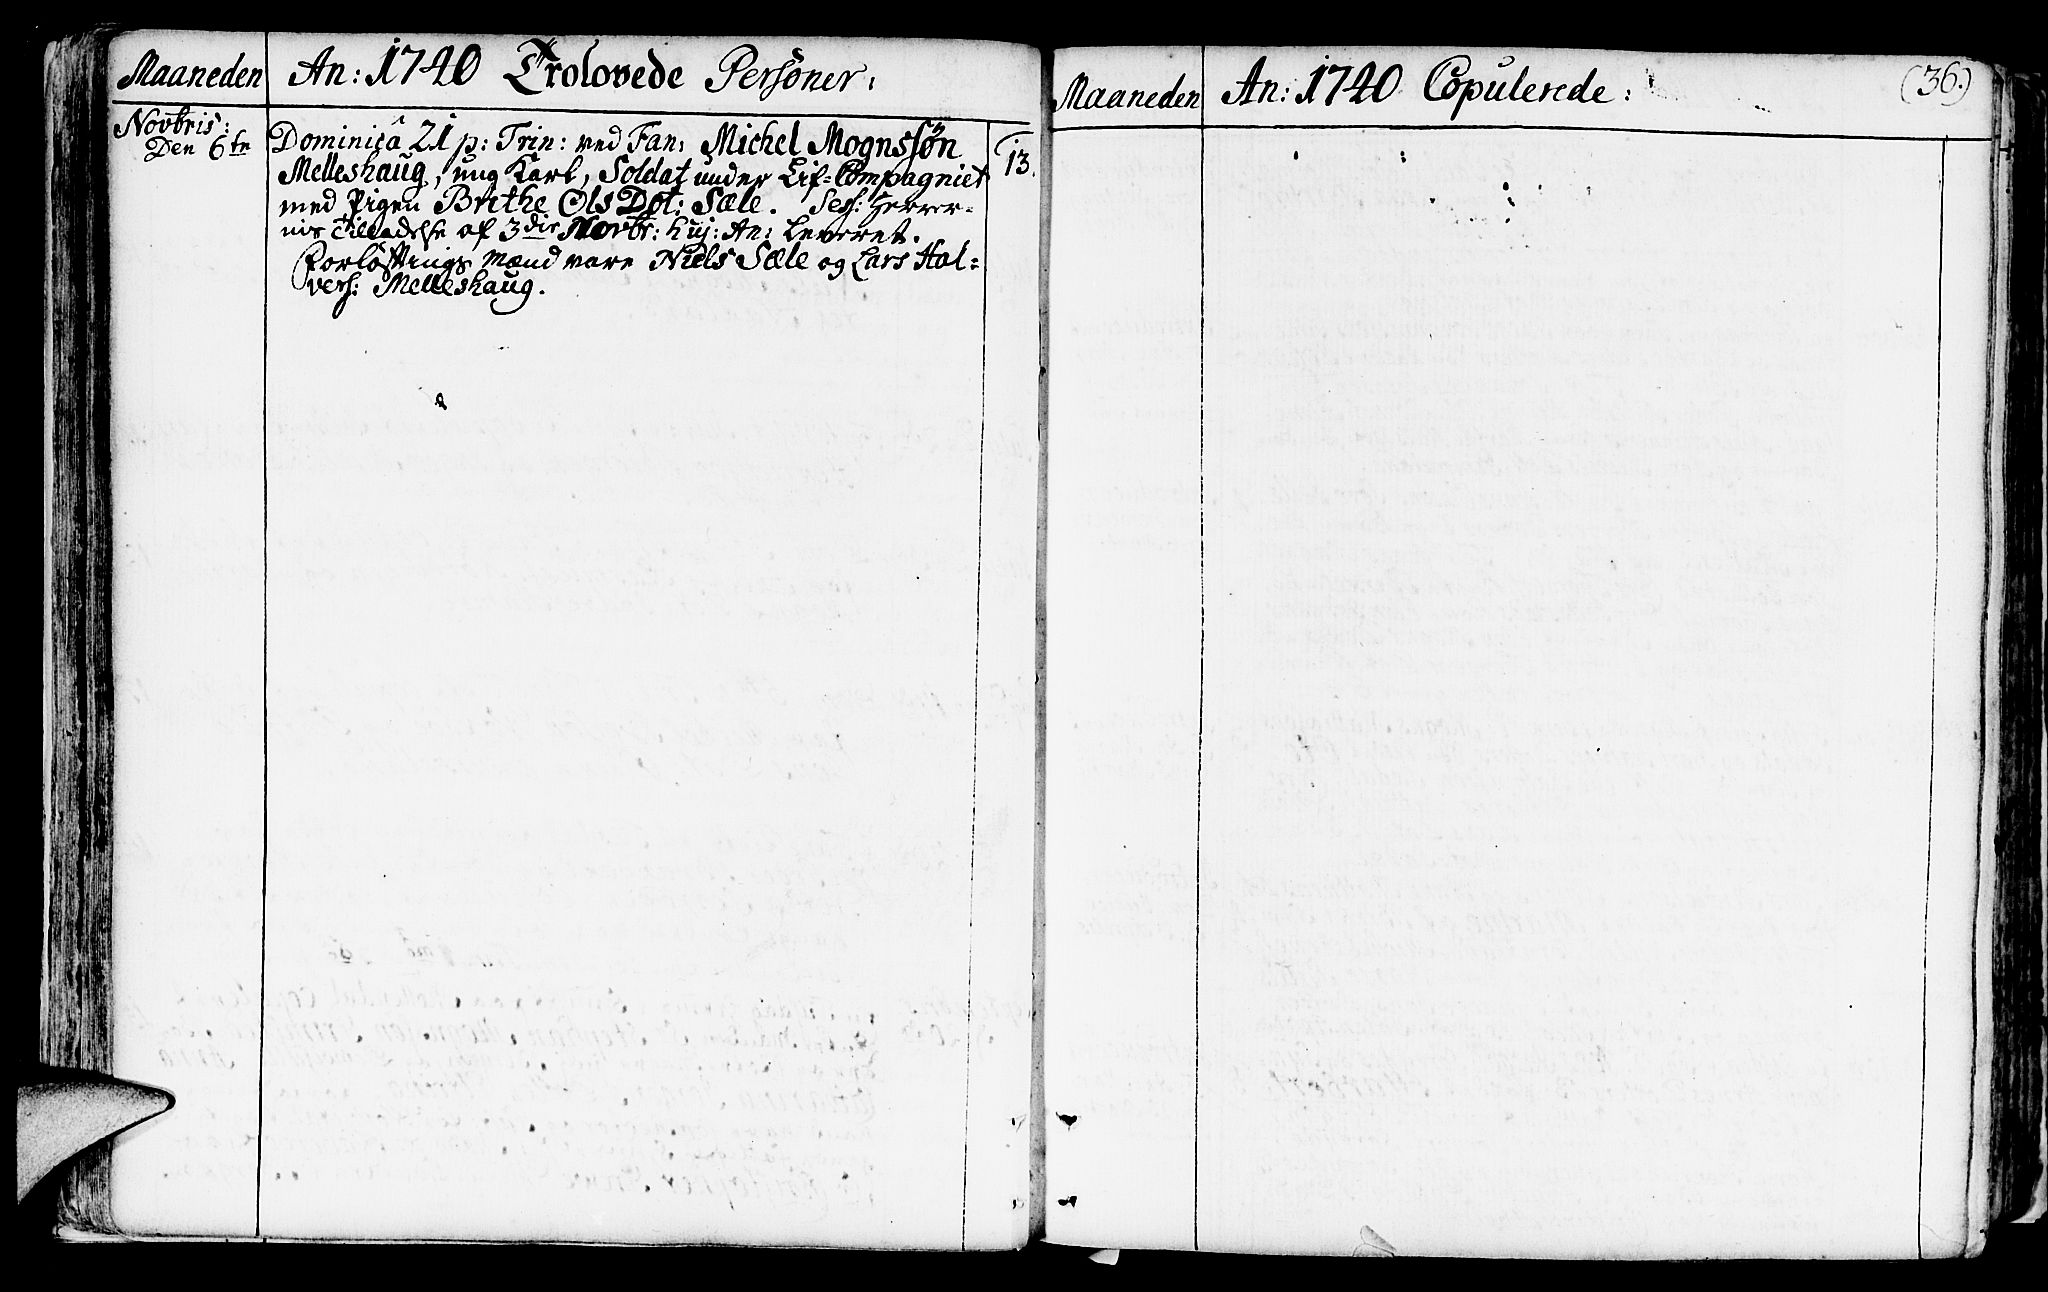 Maaneden An: 1740 Trolovede Persöner:
Novbris:
Den 6te
Dominica 21 p: Trin: ved Fan: Michel Mognssön
Melleshaug, ung Karl, Soldat under Lif-Compagniet
med Pigen Brithe Ols Dot: Sæle. Sess: Herrer-
nis Tilladelse af 3die Novbr: huj: An: Leveret.
Forlöftnings Mænd vare Niels Sæle og Lars Hal-
vers: Melleshaug.
13.
Maaneden An: 1740 Copulerede:
(36.)